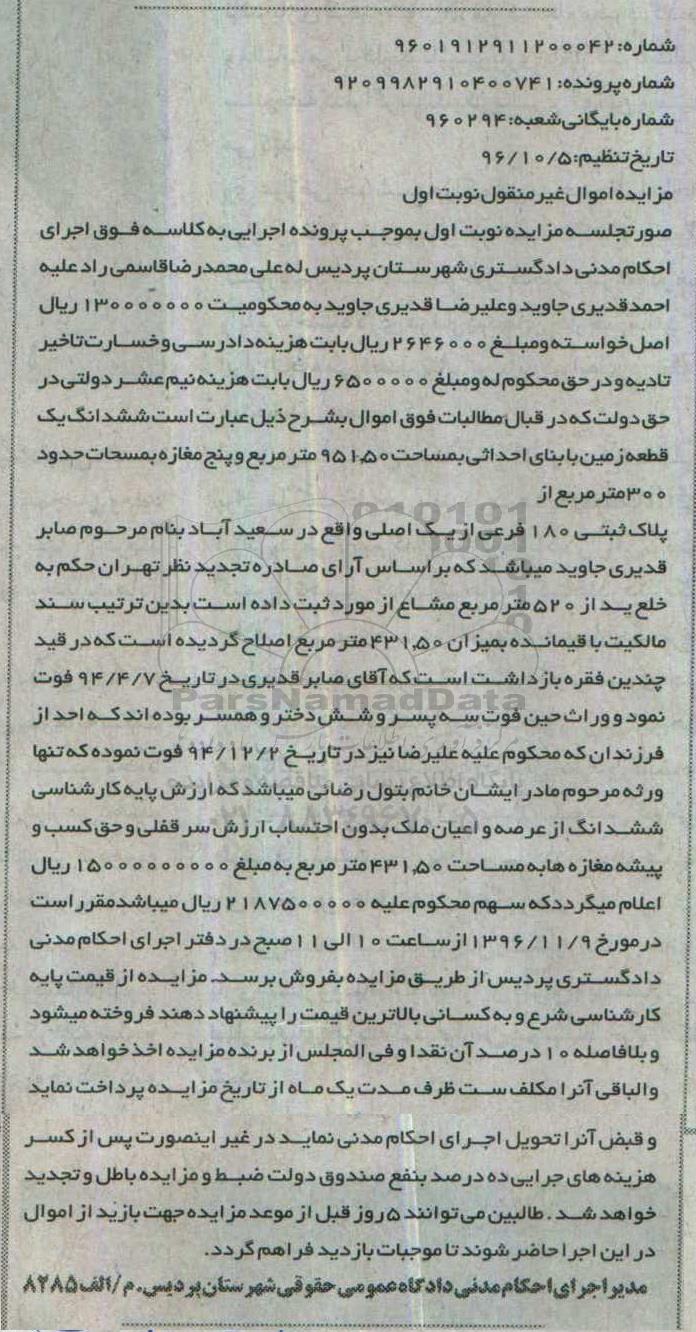 شماره: ۹۶۰۱۹۱۲۹۱۱۲۰۰۰۴۲
شماره پرونده: ۹۲۰۹۹۸۲۹۱۰۴۰۰۷۴۱
شماره بایگانی شعبه: ۹۶۰۲۹۴
تاریخ تنظیم: ۹۶/۱۰/۵
مزایده اموال غیر منقول نوبت اول
صورتجلسه مزایده نوبت اول بموجب پرونده اجرایی به کلاسه فوق اجرای
احکام مدنی دادگستری شهرستان پردیس له علی محمدرضا قاسمی راد علیه
احمد قدیری جاوید و علیرضا قدیری جاوید به محکومیت ۱۳۰۰۰۰۰۰۰ ریال
اصل خواسته و مبلغ ۲۶۴۶۰۰۰ ریال بابت هزینه دادرسی و خسارت تاخیر
تادیه و در حق محکوم له و مبلغ ۶۵۰۰۰۰۰ ریال بابت هزینه نیم عشر دولتی در
حق دولت که در قبال مطالبات فوق اموال بشرح ذیل عبارت است ششدانگ یک
قطعه زمین با بنای احداثی بمساحت ۹۵۱,۵۰ متر مربع و پنج مغازه بمسحات حدود
۳۰۰ متر مربع از
پلاک ثبتی ۱۸۰ فرعی از یک اصلی واقع در سعید آباد بنام مرحوم صابر
قدیری جاوید میباشد که بر اساس آرای صادره تجدید نظر تهران حکم به
خلع ید از ۵۲۰ متر مربع مشاع از مورد ثبت داده است بدین ترتیب سند
مالکیت باقیمانده بمیزان ۴۳۱,۵۰ متر مربع اصلاح گردیده است که در قید
چندین فقره بازداشت است که آقای صابر قدیری در تاریخ ۹۴/۴/۷ فوت
نمود و وراث حین فوت سه پسر و شش دختر و همسر بوده اند که احد از
فرزندان که محکوم علیه علیرضا نیز در تاریخ ۹۴/۱۲/۲ فوت نموده که تنها
ورثه مرحوم مادر ایشان خانم بتول رضائی میباشد که ارزش پایه کارشناسی
ششدانگ از عرصه و اعیان ملک بدون احتساب ارزش سر قفلی و حق کسب و
پیشه مغازه ها به مساحت ۴۳۱,۵۰ متر مربع به مبلغ ۱۵۰۰۰۰۰۰۰۰۰ ریال
اعلام میگردد که سهم محکوم علیه ۲۱۸۷۵۰۰۰۰۰ ریال میباشد مقرر است
در مورخ ۱۳۹۶/۱۱/۹ از ساعت ۱۰ الی ۱۱ صبح در دفتر اجرای احکام مدنی
دادگستری پردیس از طریق مزایده بفروش برسد. مزایده از قیمت پایه
کارشناسی شرع و به کسانی بالاترین قیمت را پیشنهاد دهند فروخته میشود
و بلافاصله ۱۰ درصد آن نقدا و فی المجلس از برنده مزایده اخذ خواهد شد
و الباقی آنرا مکلف ست ظرف مدت یک ماه از تاریخ مزایده پرداخت نماید
و قبض آنرا تحویل اجرای احکام مدنی نماید در غیر اینصورت پس از کسر
هزینه های جرایی ده درصد بنفع صندوق دولت ضبط و مزایده باطل و تجدید
خواهد شد. طالبین می توانند ۵ روز قبل از موعد مزایده جهت بازید از اموال
در این اجرا حاضر شوند تا موجبات بازدید فراهم گردد.
مدیر اجرای احکام مدنی دادگاه عمومی حقوقی شهرستان پردیس. م/الف ۸۲۸۵
ParsNamadData